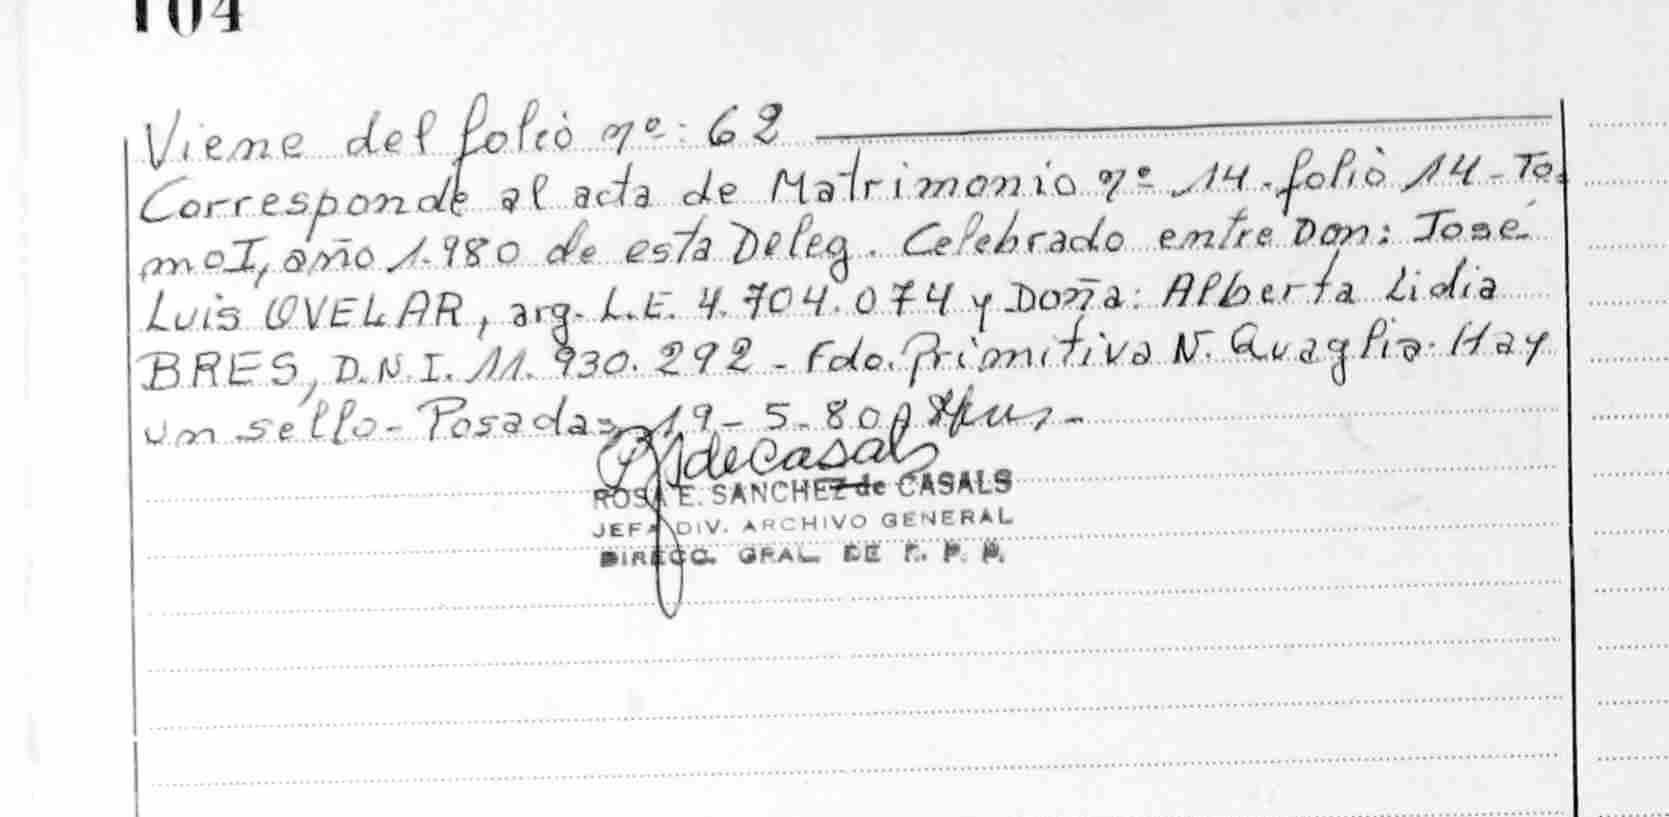 104
Viene del folio nº: 62
Corresponde al acta de Matrimonio nº 14. folio 14 - To.
moI, año 1.980 de esta Deleg. Celebrado entre Don: José
Luis OVELAR, arg. L.E. 4.704.074 y Doña: Alberta Lidia
BRES, D.N.I. 11.930.292 - Fdo. Primitiva N. Quaglia. Hay
un sello - Posadas, 19 - 5 - 80
de Casals
ROSA E. SANCHEZ de CASALS
JEFA DIV. ARCHIVO GENERAL
DIRECC. GRAL. DE